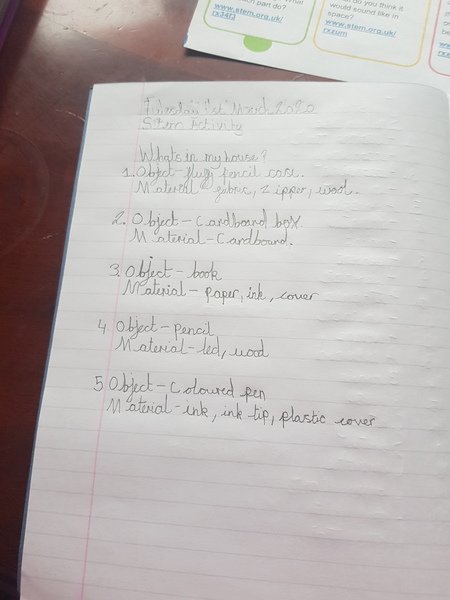 What
part do?
www.stem.org.uk/
rx34f3
do you think it
would sound like in
space?
www.stem.org.uk/
Tuesday March 2020
Stem Activity
What's in my house?
1. Object - fluffy pencil case.
Material - fabric, zipper, wool.
2. Object - Cardboard box.
Material - Cardboard.
3. Object - book
Material - paper, ink, cover
4. Object - pencil
Material - led, wood
5. Object - Coloured pen
Material - ink, ink tip, plastic cover